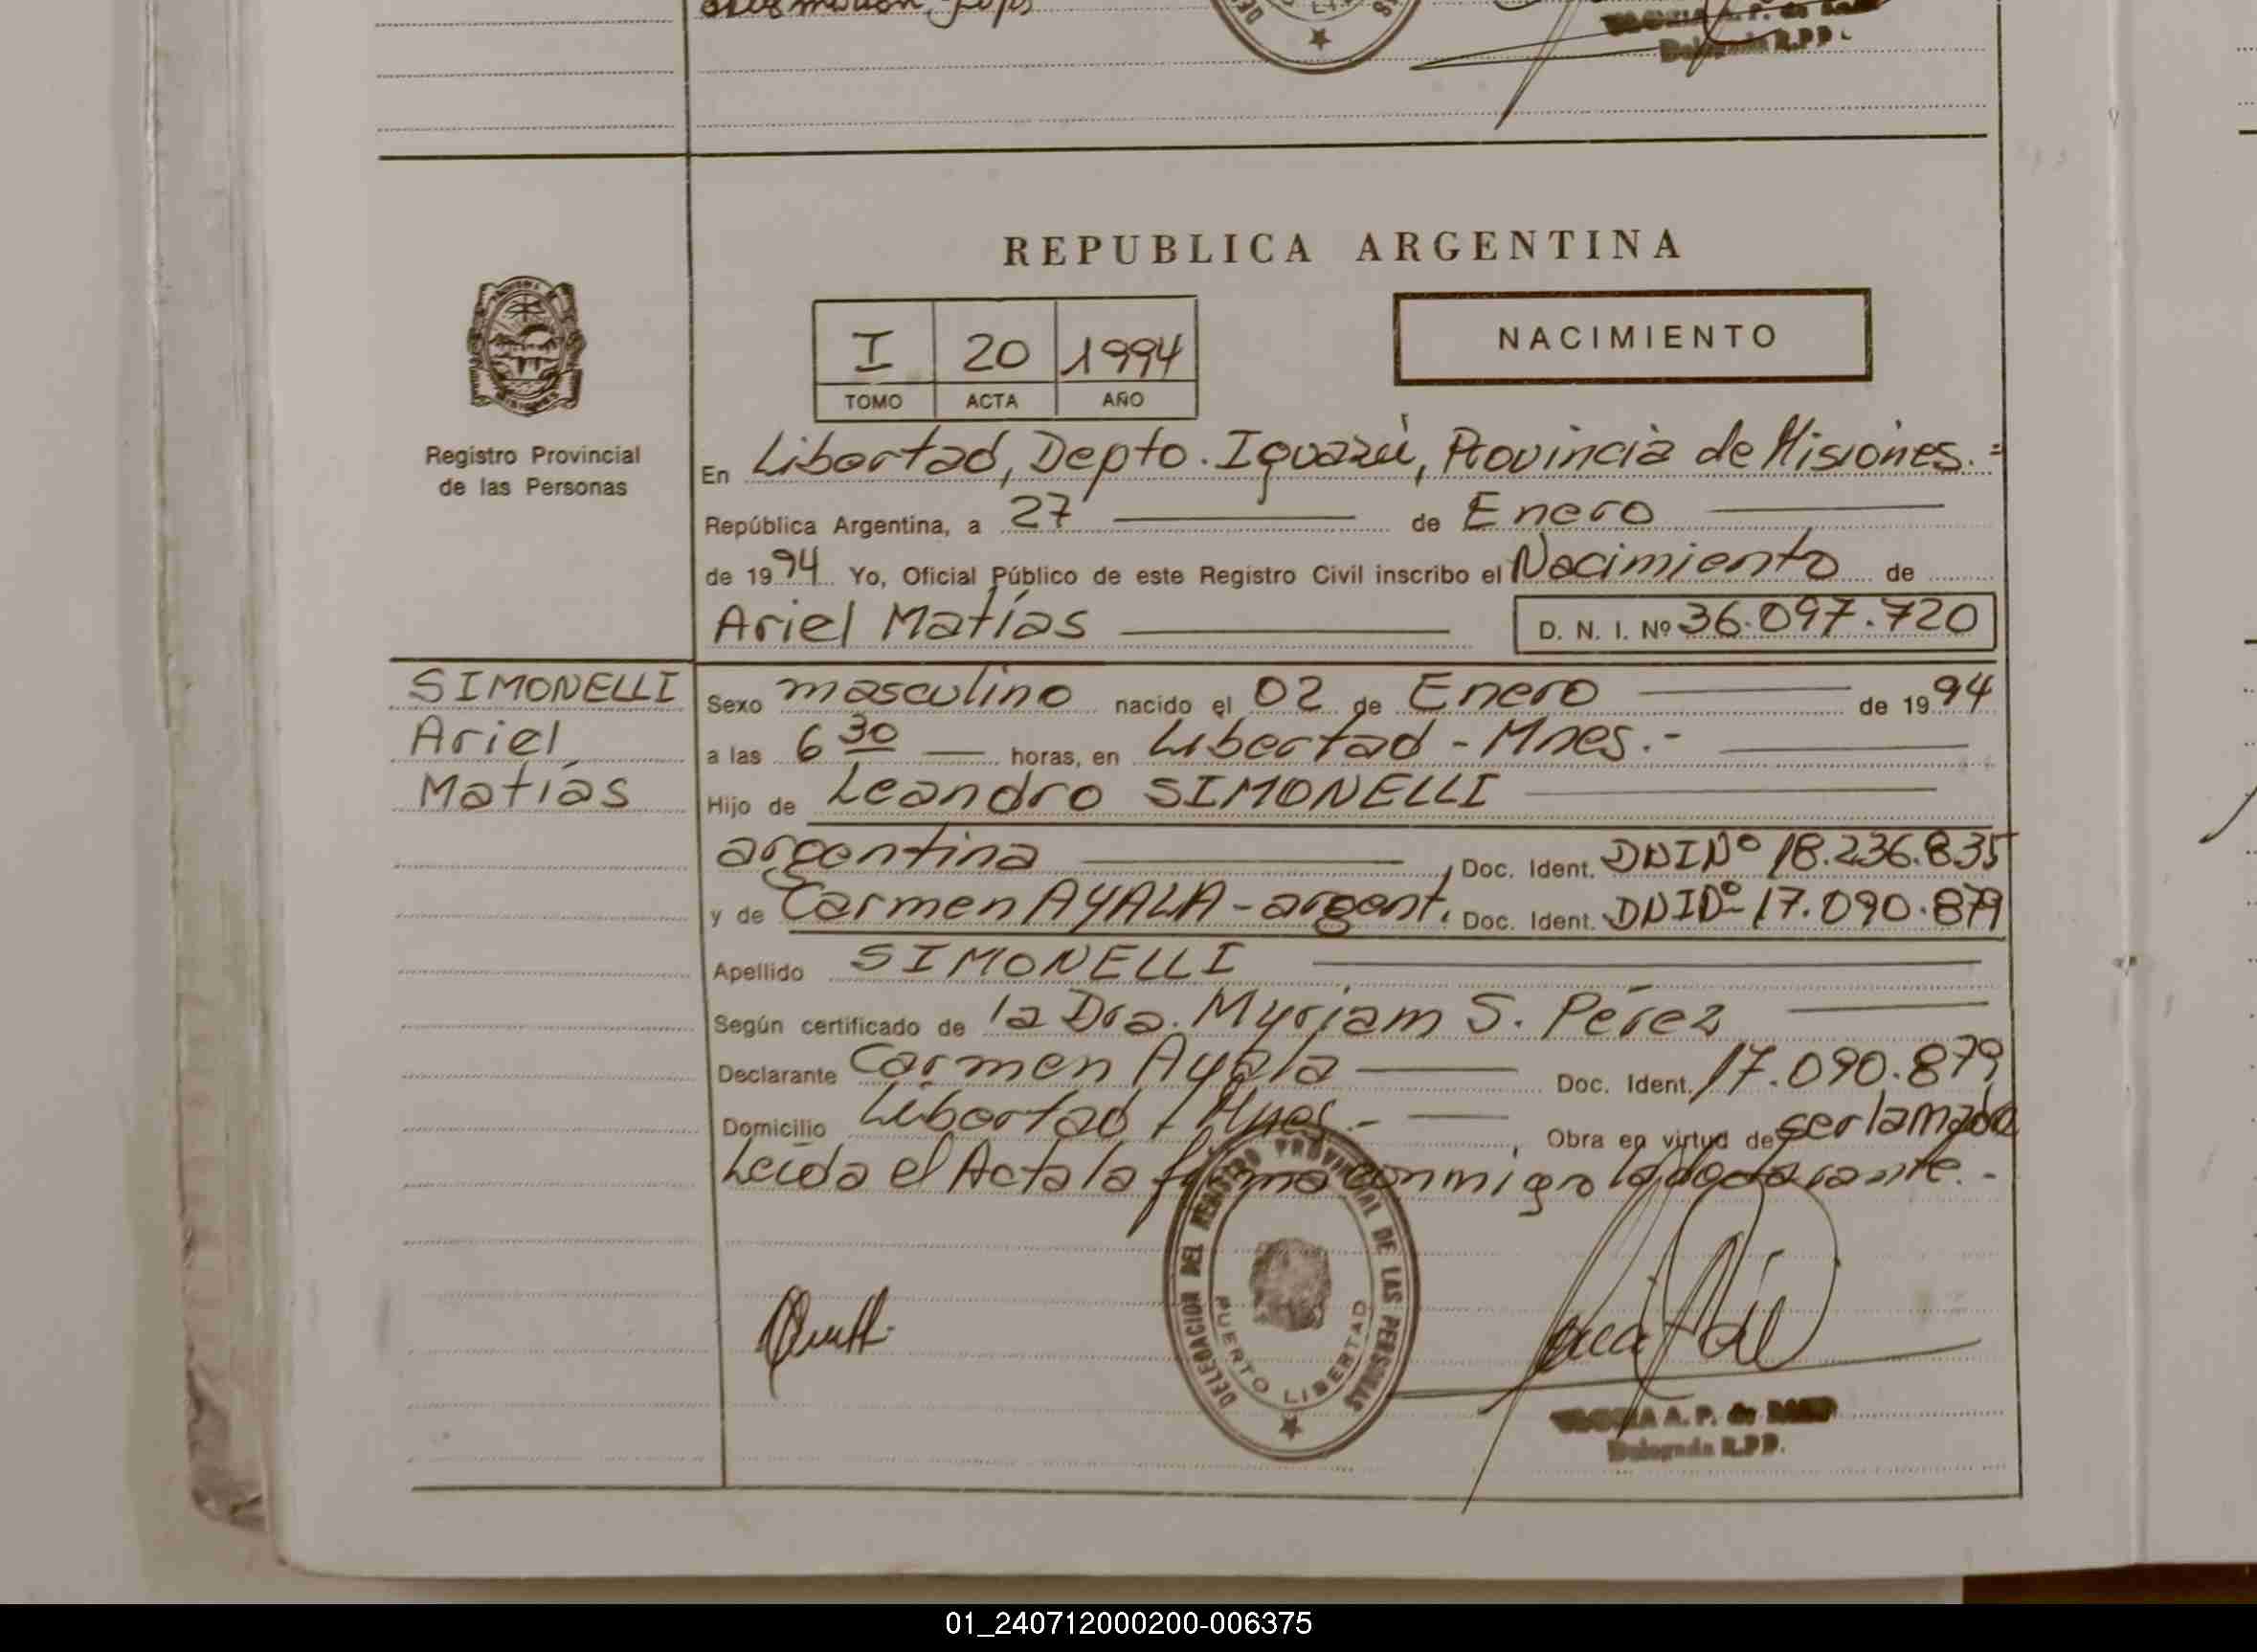 REPUBLICA ARGENTINA
I 20 1994
TOMO ACTA AÑO
NACIMIENTO
Registro Provincial
de las Personas
En Libertad, Depto. Iguazú, Provincia de Misiones.=
República Argentina, a 27 de Enero
de 1994 Yo, Oficial Público de este Registro Civil inscribo el Nacimiento de
Ariel Matías D. N. I. Nº 36.097.720
SIMONELLI
Ariel
Matías
Sexo masculino nacido el 02 de Enero de 1994
a las 6 30 horas, en Libertad - Mnes.-
Hijo de Leandro SIMONELLI
argentina, Doc. Ident. DNI Nº 18.236.835
y de Carmen AYALA - argent. Doc. Ident. DNI Nº 17.090.879
Apellido SIMONELLI
Según certificado de la Dra. Myriam S. Pérez
Declarante Carmen Ayala Doc. Ident. 17.090.879
Domicilio Libertad - Mnes.-, Obra en virtud de ser la madre
Leída el Acta la firma conmigo la declarante.-
DELEGACION DEL REGISTRO PROVINCIAL DE LAS PERSONAS
PUERTO LIBERTAD
A. P. de
Delegada R.P.P.
01_240712000200-006375